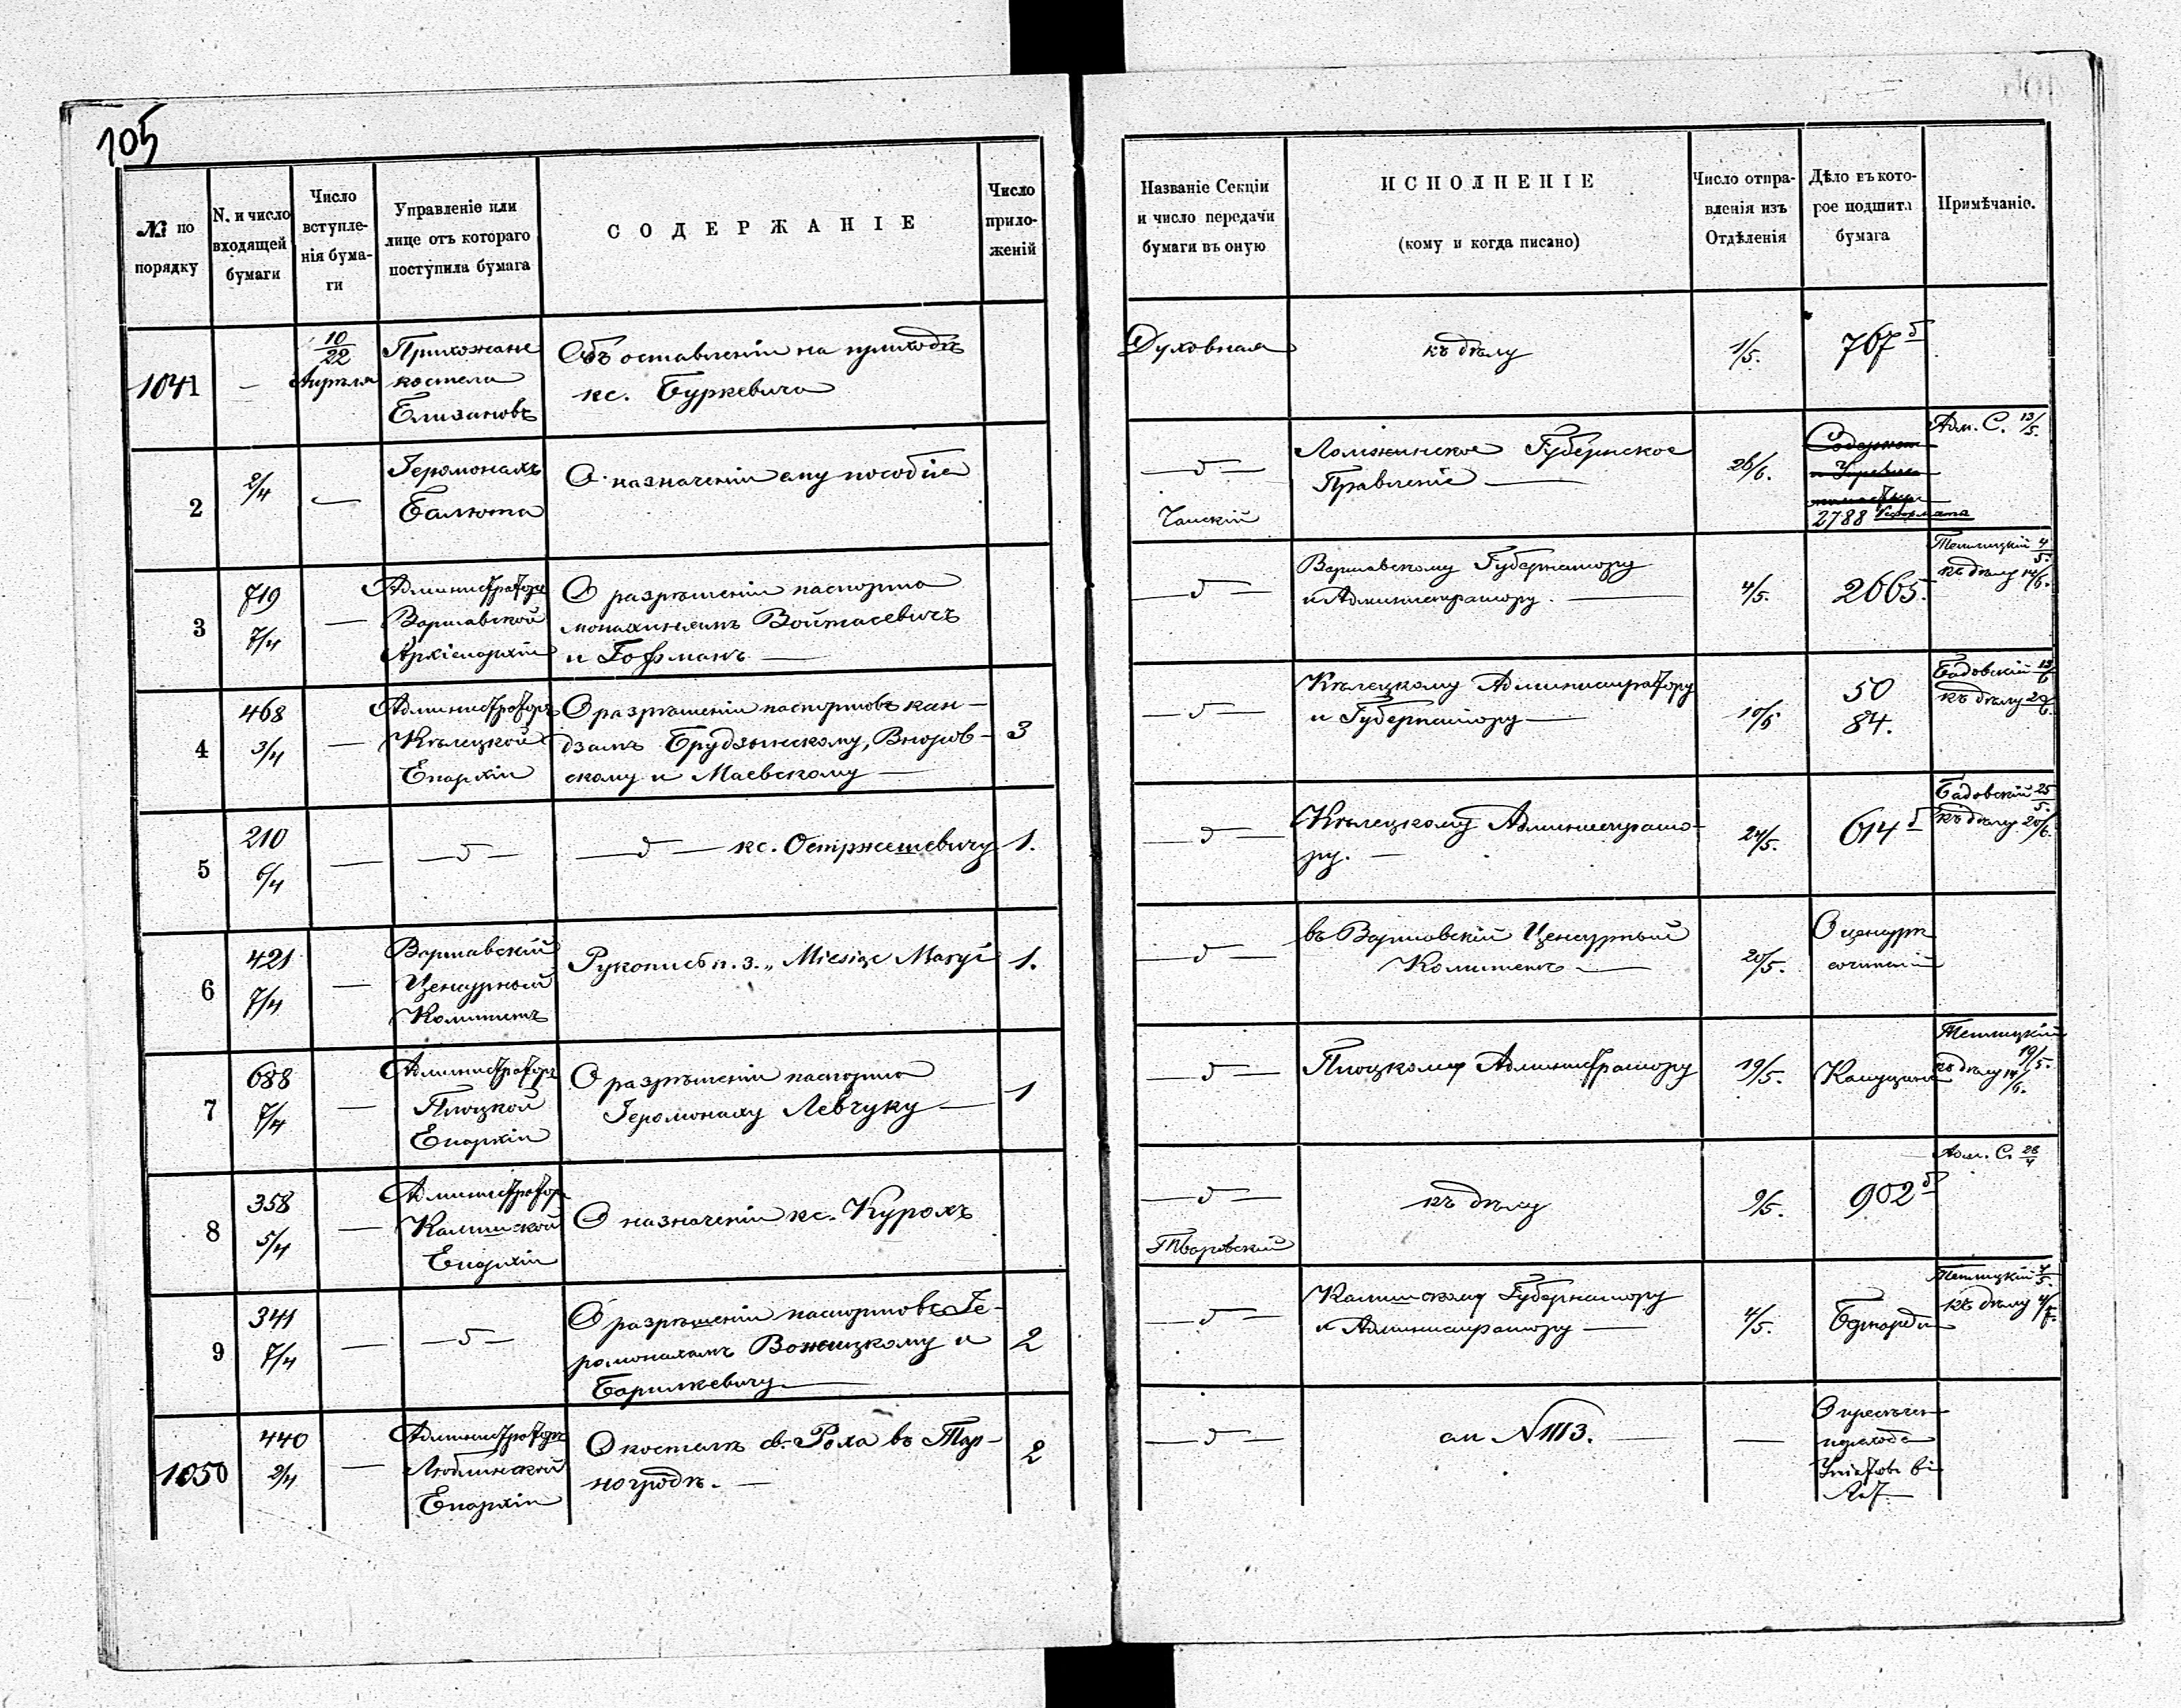 105
№ по порядку
N. и число входящей бумаги
Число вступле-нія бума-ги
Управленіе или лице отъ котораго поступила бумага
СОДЕРЖАНІЕ
Число прило-женій
Названіе Секціи и число передачи бумаги въ оную
ИСПОЛНЕНІЕ
(кому и когда писано)
Число отпра-вленія изъ Отдѣленія
Дѣло въ кото-рое подшита бумага
Примѣчаніе.
1041
—
10/22
Апрѣля
Прихожане
костела
Елизановъ
Объ оставленіи на приходѣ
кс. Буркевича
Духовная
къ дѣлу
1/5.
767 б
2
2/4
—
Іеромонахъ
Балюта
О назначеніи ему пособія
— д —
Ломжинское Губернское
Правленіе —
26/6.
2788
Адм. С. 13/5.
3
719
7/4
—
Администраторъ
Варшавской
Архіепархіи
О разрѣшеніи паспорта
монахинямъ Войтасевичъ
и Гофманъ —
— д —
Варшавскому Губернатору
и Администратору. —
4/5.
2665.
къ дѣлу 14/6.
4
468
3/4
—
Администраторъ
Кѣлецкой
Епархіи
О разрѣшеніи паспортовъ ксен-
дзамъ Брудзынскому,
скому и Маевскому —
3
— д —
Кѣлецкому Администратору
и Губернатору —
10/5
50
84.
Бадовскій
къ дѣлу
5
210
6/4
—
— д —
— д — кс. Остржешевичу
1.
— д —
Кѣлецкому Администрато-
ру. —
24/5.
614 б
Бадовскій 25/5.
къ дѣлу 20/6.
6
421
7/4
—
Варшавскій
Цензурный
Комитетъ
Рукопись п. з. „Miesiąc Maryi
1.
— д —
въ Варшавскій Цензурный
Комитетъ —
20/5.
О цензурѣ
сочиненій
7
688
7/4
—
Администраторъ
Плоцкой
Епархіи
О разрѣшеніи паспорта
Іеромонаху Левчуку —
1
— д —
Плоцкому Администратору
19/5.
19/5.
къ дѣлу 14/6.
8
358
5/4
—
Администраторъ
Калишской
Епархіи
О назначеніи кс. Курохъ
— д —
къ дѣлу
9/5.
902 б
Адм. С. 28/4
9
341
7/4
—
— д —
О разрѣшеніи паспортовъ Іе-
ромонахамъ Вожницкому и
Барилкевичу —
2
— д —
Калишскому Губернатору
и Администратору —
4/5.
къ дѣлу
1050
440
2/4
—
Администраторъ
Люблинской
Епархіи
О костелѣ св. Роха въ Тар-
ногродѣ. —
2
— д —
см N 1113. —
—
О пресѣчен
перехода
Уніатовъ въ